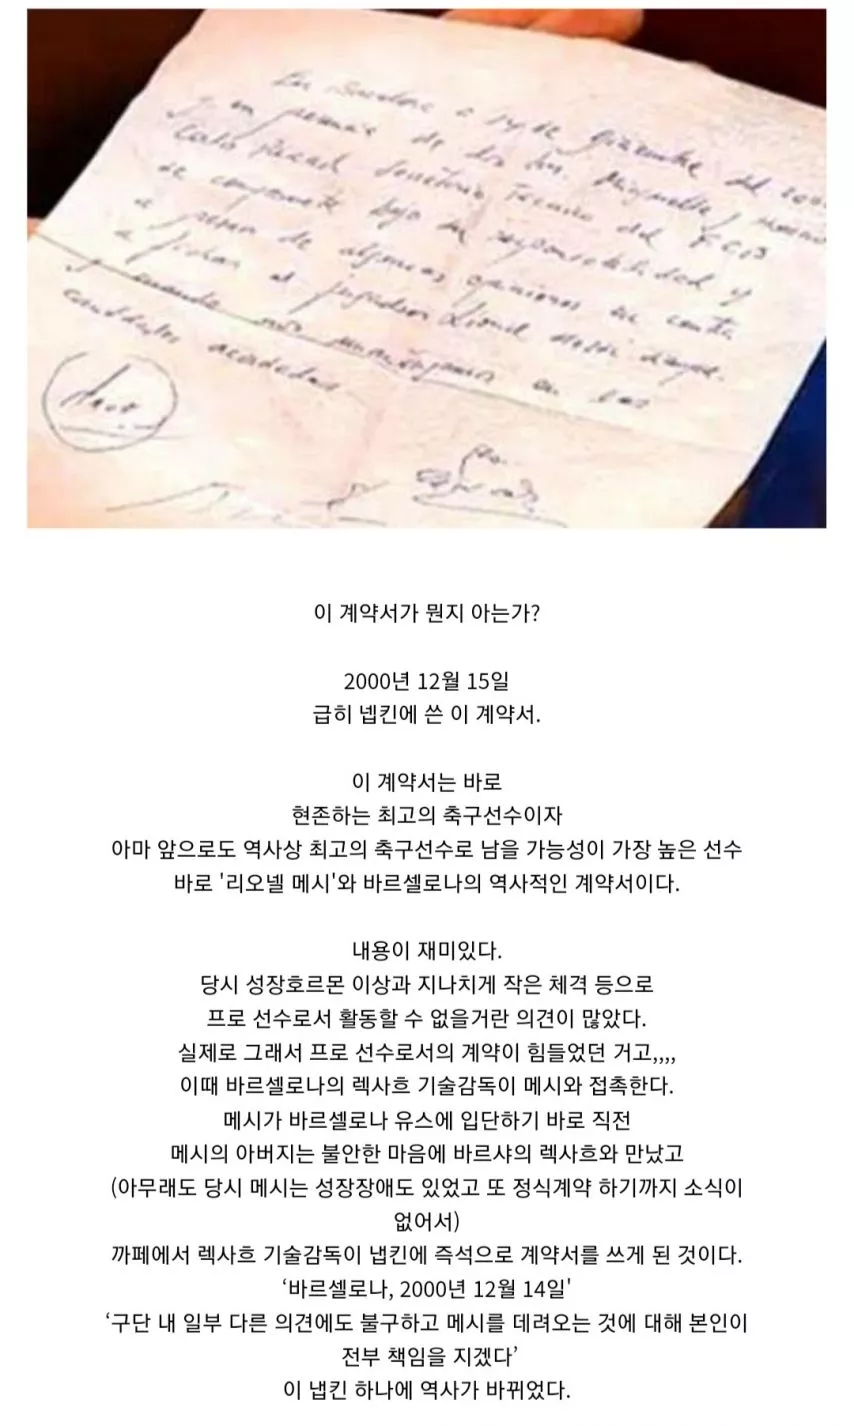 a 14 de Diciembre del
y en de los Minguella y
Secretario Tecnico del F.C.B
se compromete bajo su responsabilidad y
a pesar de algunas opiniones en contra
a fichar al jugador Lionel Messi
y cuando nos mantengamos en las
cantidades acordadas
이 계약서가 뭔지 아는가?
2000년 12월 15일
급히 넵킨에 쓴 이 계약서.
이 계약서는 바로
현존하는 최고의 축구선수이자
아마 앞으로도 역사상 최고의 축구선수로 남을 가능성이 가장 높은 선수
바로 '리오넬 메시'와 바르셀로나의 역사적인 계약서이다.
내용이 재미있다.
당시 성장호르몬 이상과 지나치게 작은 체격 등으로
프로 선수로서 활동할 수 없을거란 의견이 많았다.
실제로 그래서 프로 선수로서의 계약이 힘들었던 거고,,,,
이때 바르셀로나의 렉사흐 기술감독이 메시와 접촉한다.
메시가 바르셀로나 유스에 입단하기 바로 직전
메시의 아버지는 불안한 마음에 바르샤의 렉사흐와 만났고
(아무래도 당시 메시는 성장장애도 있었고 또 정식계약 하기까지 소식이
없어서)
까페에서 렉사흐 기술감독이 냅킨에 즉석으로 계약서를 쓰게 된 것이다.
‘바르셀로나, 2000년 12월 14일'
‘구단 내 일부 다른 의견에도 불구하고 메시를 데려오는 것에 대해 본인이
전부 책임을 지겠다’
이 냅킨 하나에 역사가 바뀌었다.